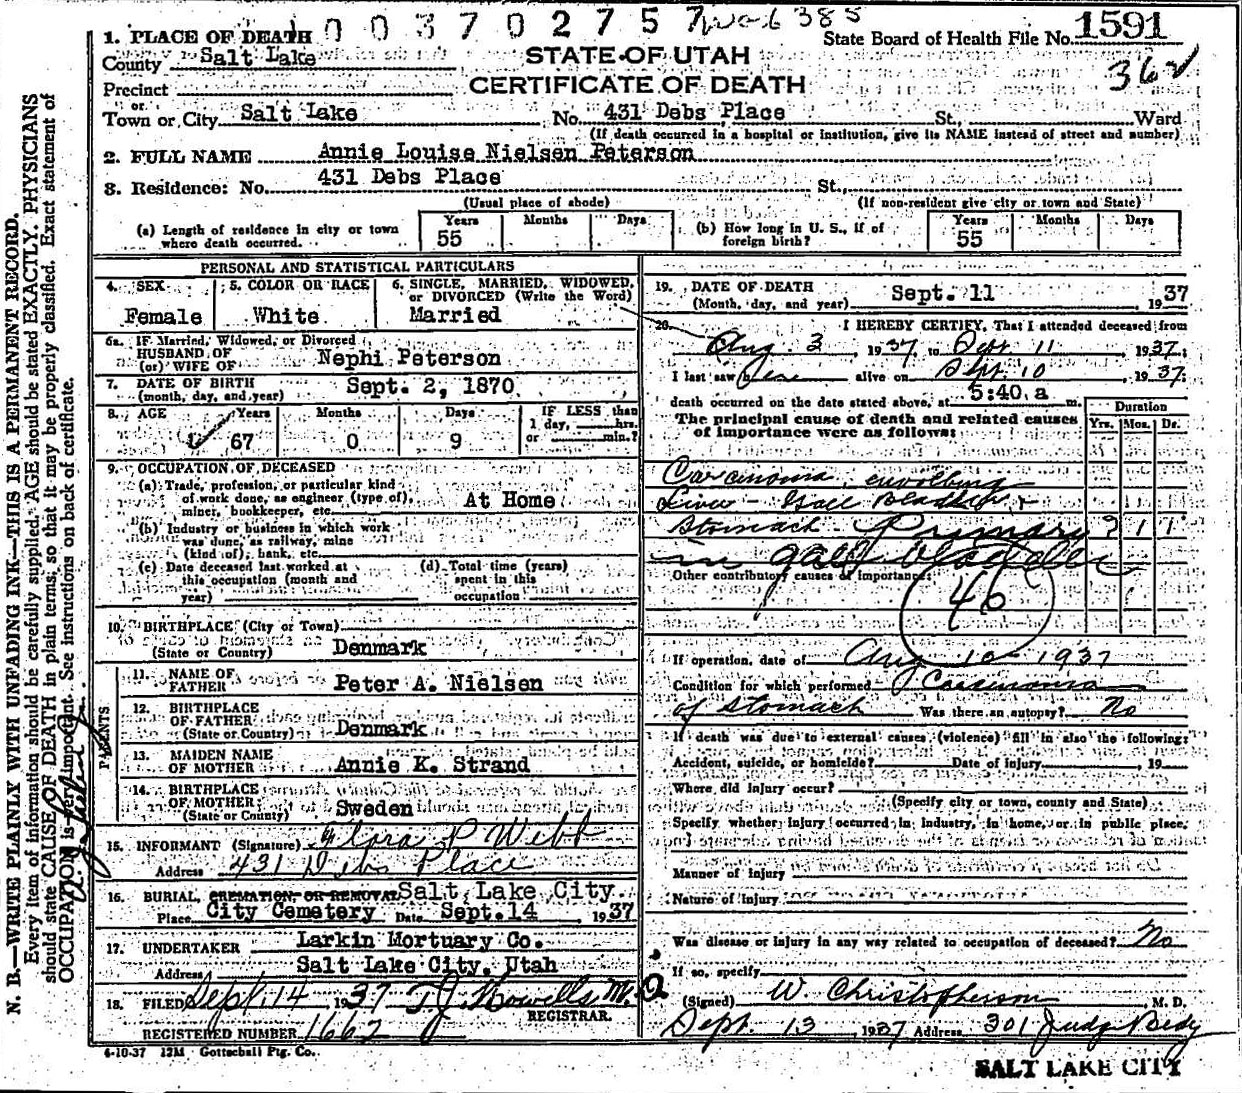 003702757 385
1. PLACE OF DEATH
State Board of Health File No. 1591
County Salt Lake
STATE OF UTAH
362
Precinct
CERTIFICATE OF DEATH
or
Town or City Salt Lake No. 431 Debs Place St., Ward
(If death occurred in a hospital or institution, give its NAME instead of street and number)
2. FULL NAME Annie Louise Nielsen Peterson
8. Residence: No. 431 Debs Place St.,
(Usual place of abode) (If non-resident give city or town and State)
(a) Length of residence in city or town where death occurred. Years 55 Months Days
(b) How long in U. S., if of foreign birth? Years 55 Months Days
PERSONAL AND STATISTICAL PARTICULARS
4. SEX Female
5. COLOR OR RACE White
6. SINGLE, MARRIED, WIDOWED, or DIVORCED (Write the Word) Married
6a. IF Married, Widowed, or Divorced
HUSBAND OF
(or) WIFE OF Nephi Peterson
7. DATE OF BIRTH
(month, day, and year) Sept. 2, 1870
8. AGE Years 67 Months 0 Days 9
IF LESS than
1 day, hrs.
or min.?
9. OCCUPATION OF DECEASED
(a) Trade, profession, or particular kind
of work done, as engineer (type of),
miner, bookkeeper, etc. At Home
(b) Industry or business in which work
was done, as railway, mine
(kind of), bank, etc.
(c) Date deceased last worked at
this occupation (month and
year)
(d) Total time (years)
spent in this
occupation
10. BIRTHPLACE (City or Town)
(State or Country) Denmark
PARENTS
11. NAME OF
FATHER Peter A. Nielsen
12. BIRTHPLACE
OF FATHER
(State or Country) Denmark
13. MAIDEN NAME
OF MOTHER Annie K. Strand
14. BIRTHPLACE
OF MOTHER
(State or County) Sweden
15. INFORMANT (Signature) Flora P Webb
Address 431 Debs Place
16. BURIAL, CREMATION OR REMOVAL Salt Lake City
Place City Cemetery Date Sept. 14 1937
17. UNDERTAKER Larkin Mortuary Co.
Address Salt Lake City, Utah
18. FILED Sept. 14 1937 T.J. Howells M.D.
REGISTRAR.
REGISTERED NUMBER 1662
4-10-37 12M Gottschall Ptg. Co.
19. DATE OF DEATH
(Month, day, and year) Sept. 11 1937
20. I HEREBY CERTIFY, That I attended deceased from
Aug. 3, 1937, to Sept 11, 1937;
I last saw her alive on Sept. 10, 1937;
death occurred on the date stated above, at 5:40 a m.
The principal cause of death and related causes
of importance were as follows:
Duration
Yrs. Mos. Ds.
Carcinoma, envolving
Liver - Gall Bladder +
Stomach - Primary ?
in gall bladder
Other contributory causes of importance:
46
If operation, date of Aug 10 1937
Condition for which performed Carcinoma
of stomach Was there an autopsy? No
If death was due to external causes (violence) fill in also the following:
Accident, suicide, or homicide? Date of injury , 19
Where did injury occur?
(Specify city or town, county and State)
Specify whether injury occurred in industry, in home, or in public place.
Manner of injury
Nature of injury
Was disease or injury in any way related to occupation of deceased? No
If so, specify
(Signed) W. Christopherson, M. D.
Sept. 13, 1937 Address 301 Judge Bldg
SALT LAKE CITY
N. B.—WRITE PLAINLY WITH UNFADING INK—THIS IS A PERMANENT RECORD.
Every item of information should be carefully supplied. AGE should be stated EXACTLY. PHYSICIANS
should state CAUSE OF DEATH in plain terms, so that it may be properly classified. Exact statement of
OCCUPATION is very important. See instructions on back of certificate.